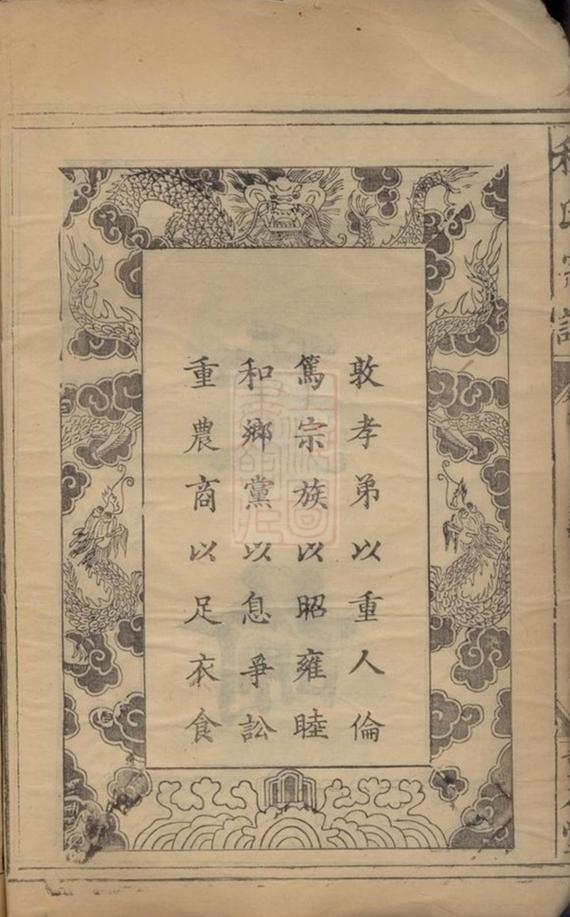 敦孝弟以重人倫
篤宗族以昭雍睦
和鄉黨以息爭訟
重農商以足衣食